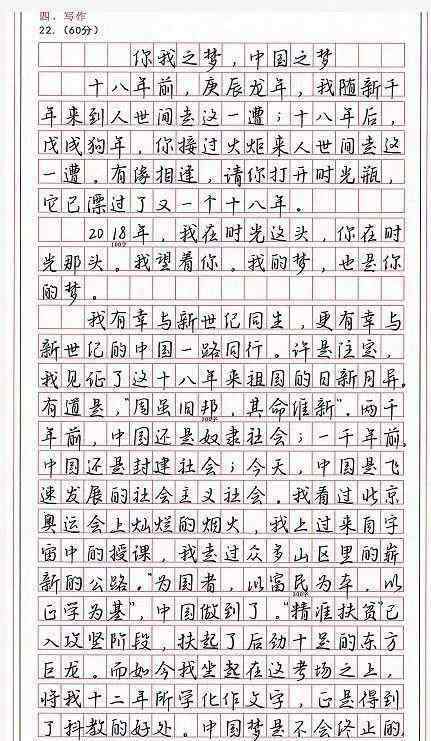 四、写作
22.（60分）
你我之梦，中国之梦
十八年前，庚辰龙年，我随新千
年来到人世间走这一遭；十八年后，
戊戌狗年，你接过火炬来人世间走这
一遭。有缘相逢，请你打开时光瓶，
它已漂过了又一个十八年。
2018年，我在时光这头，你在时
100字
光那头。我望着你。我的梦，也是你
的梦。
我有幸与新世纪同生，更有幸与
新世纪的中国一路同行。许是注定，
我见证了这十八年来祖国的日新月异。
有道是，“周虽旧邦，其命维新”。两千
200字
年前，中国还是奴隶社会；一千年前，
中国还是封建社会；今天，中国是飞
速发展的社会主义社会。我看过北京
奥运会上灿烂的烟火，我上过来自宇
宙中的授课，我走过众多山区里的崭
新的公路。“为国者，以富民为本，以
300字
正学为基”，中国做到了。“精准扶贫”已
入攻坚阶段，扶起了后劲十足的东方
巨龙。而如今我坐在这考场之上，
将我十二年所学化作文字，正是得到
了科教的好处。中国梦是不会终止的，